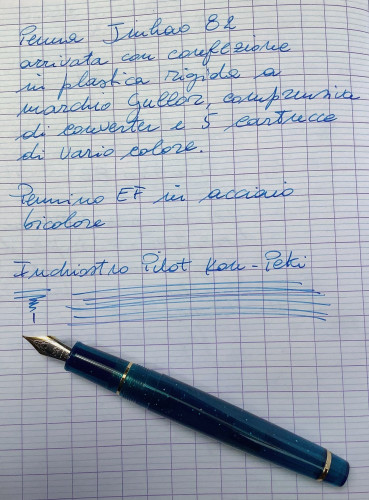 Penna Jinhao 82
arrivata con confezione
in plastica rigida a
marchio Gullor, comprensiva
di converter e 5 cartucce
di vario colore.
Pennino EF in acciaio
bicolore
Inchiostro Pilot Kon-Peki